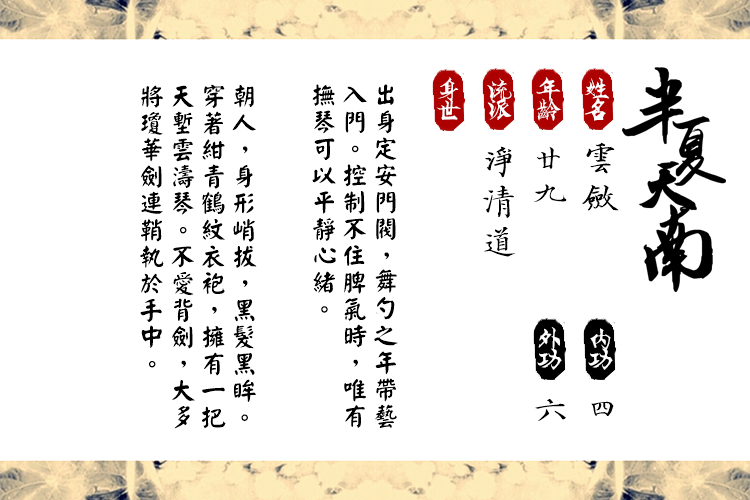 半夏天南
姓名 雲斂
內功 四
年齡 廿九
外功 六
流派 淨清道
身世
出身定安門閥，舞勺之年帶藝
入門。控制不住脾氣時，唯有
撫琴可以平靜心緒。
朝人，身形峭拔，黑髮黑眸。
穿著紺青鶴紋衣袍，擁有一把
天塹雲濤琴。不愛背劍，大多
將瓊華劍連鞘執於手中。